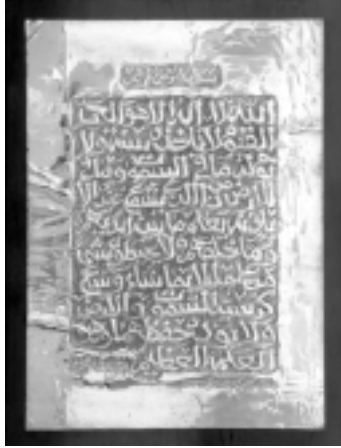 الله لا إله إلا هو الحي
القيوم لا تأخذه سنة ولا
نوم له ما في السموت وما في
الأرض من ذا الذي يشفع عنده إلا
بإذنه يعلم ما بين أيديهم
وما خلفهم ولا يحيطون بشيء
من علمه إلا بما شاء وسع
كرسيه السموت والأرض
ولا يوده حفظهما وهو
العلي العظيم